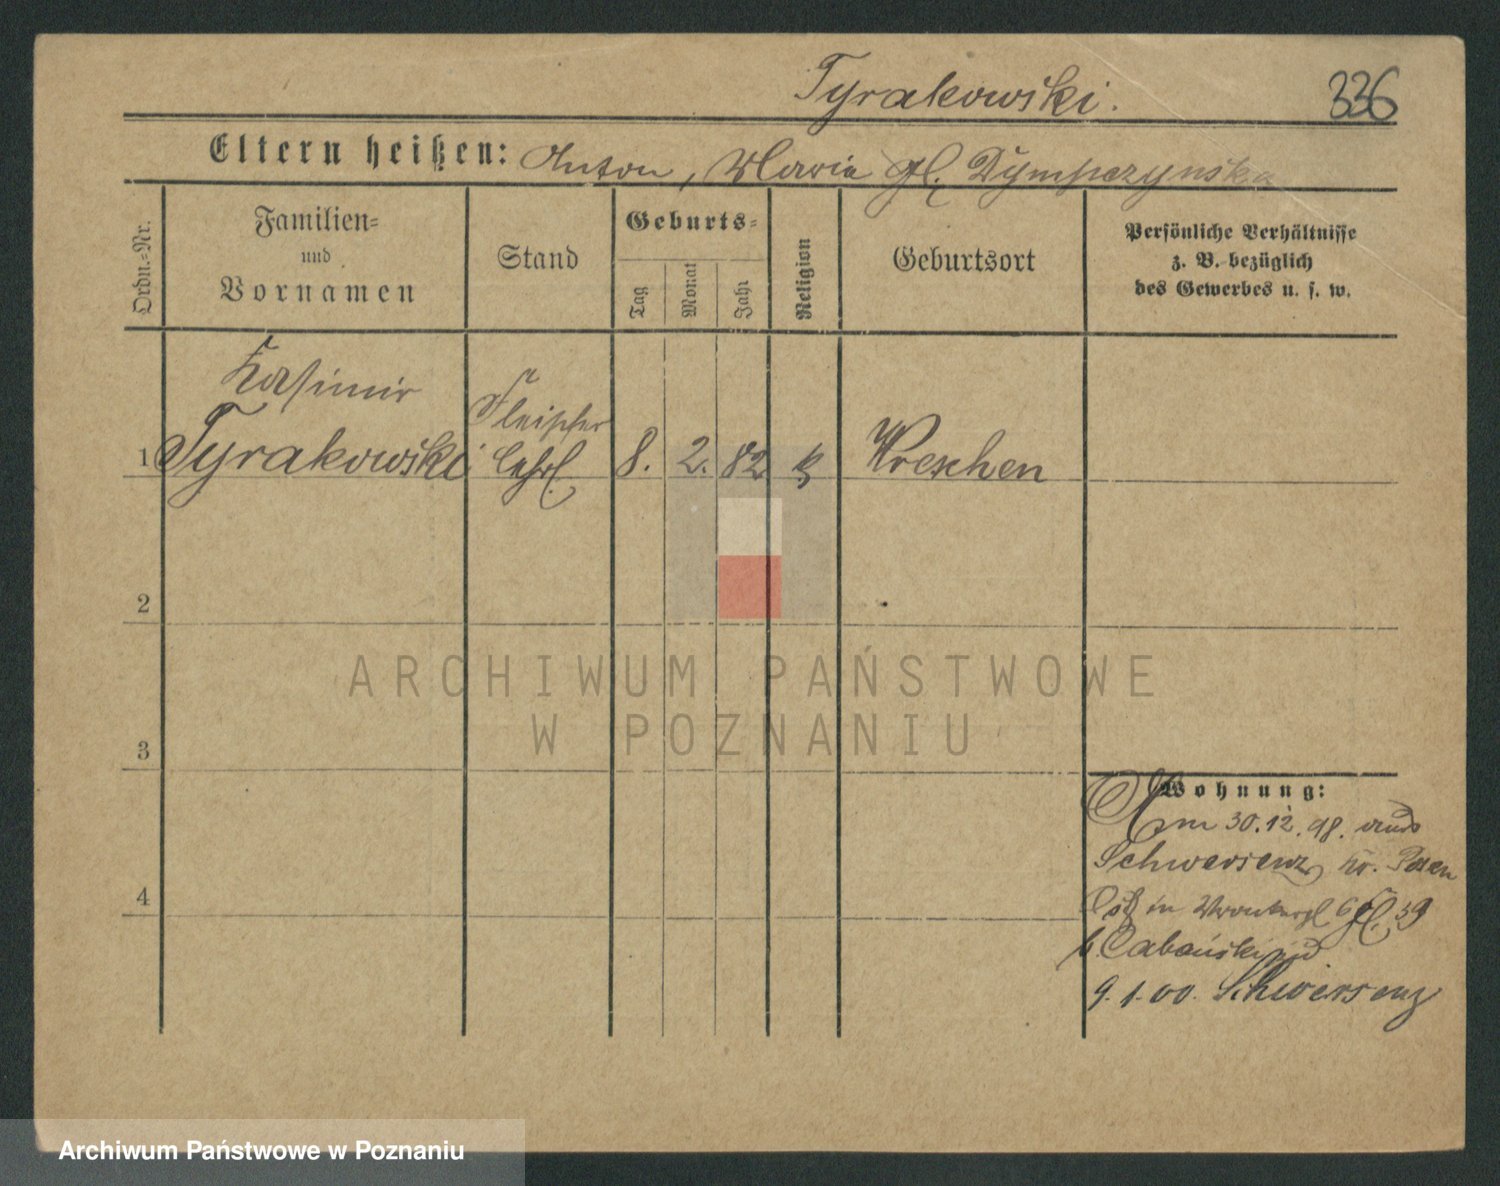 Tyrakowski.
336
Eltern heißen: Anton, Maria Dympczynska
Ordn.-Nr.
Familien-
und
Vornamen
Stand
Geburts-
Tag
Monat
Jahr
Religion
Geburtsort
Persönliche Verhältnisse
z. B. bezüglich
des Gewerbes u. s. w.
Kasimir
Tyrakowski
Fleischer
Lehrl.
1
8. 2. 82 k
Wreschen
2
3
4
Wohnung:
Am 30.12.98. aus
Schwersenz Kr. Posen
in 39
b. Cabański
9.1.00. Schwersenz
ARCHIWUM PAŃSTWOWE
W POZNANIU
Archiwum Państwowe w Poznaniu